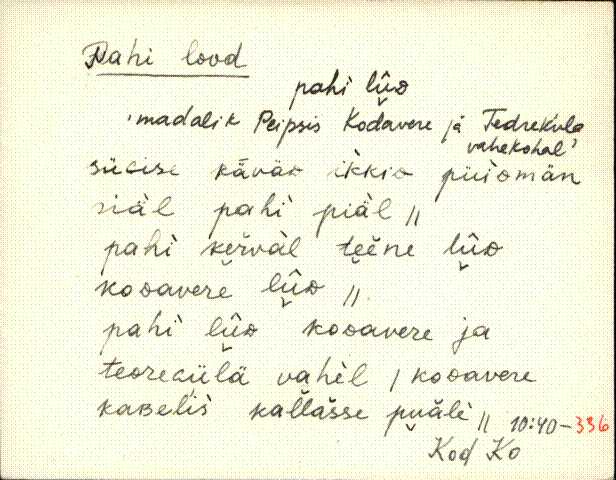 Pahi lood
pahi lûᴅ
'madalik Peipsis Kodavere ja Tedreküla
vahekohal'
sücise käväᴅ ikkiᴅ püiᴅmän
siäl pahi piäl //
pahi kervàl tẽene lûᴅ
koᴅavere lûᴅ //
pahi lûᴅ koᴅavere ja
teᴅrecülä vahèl / koᴅavere
kaʙelis kallašse puäle // 10:40-336
Kod Ko